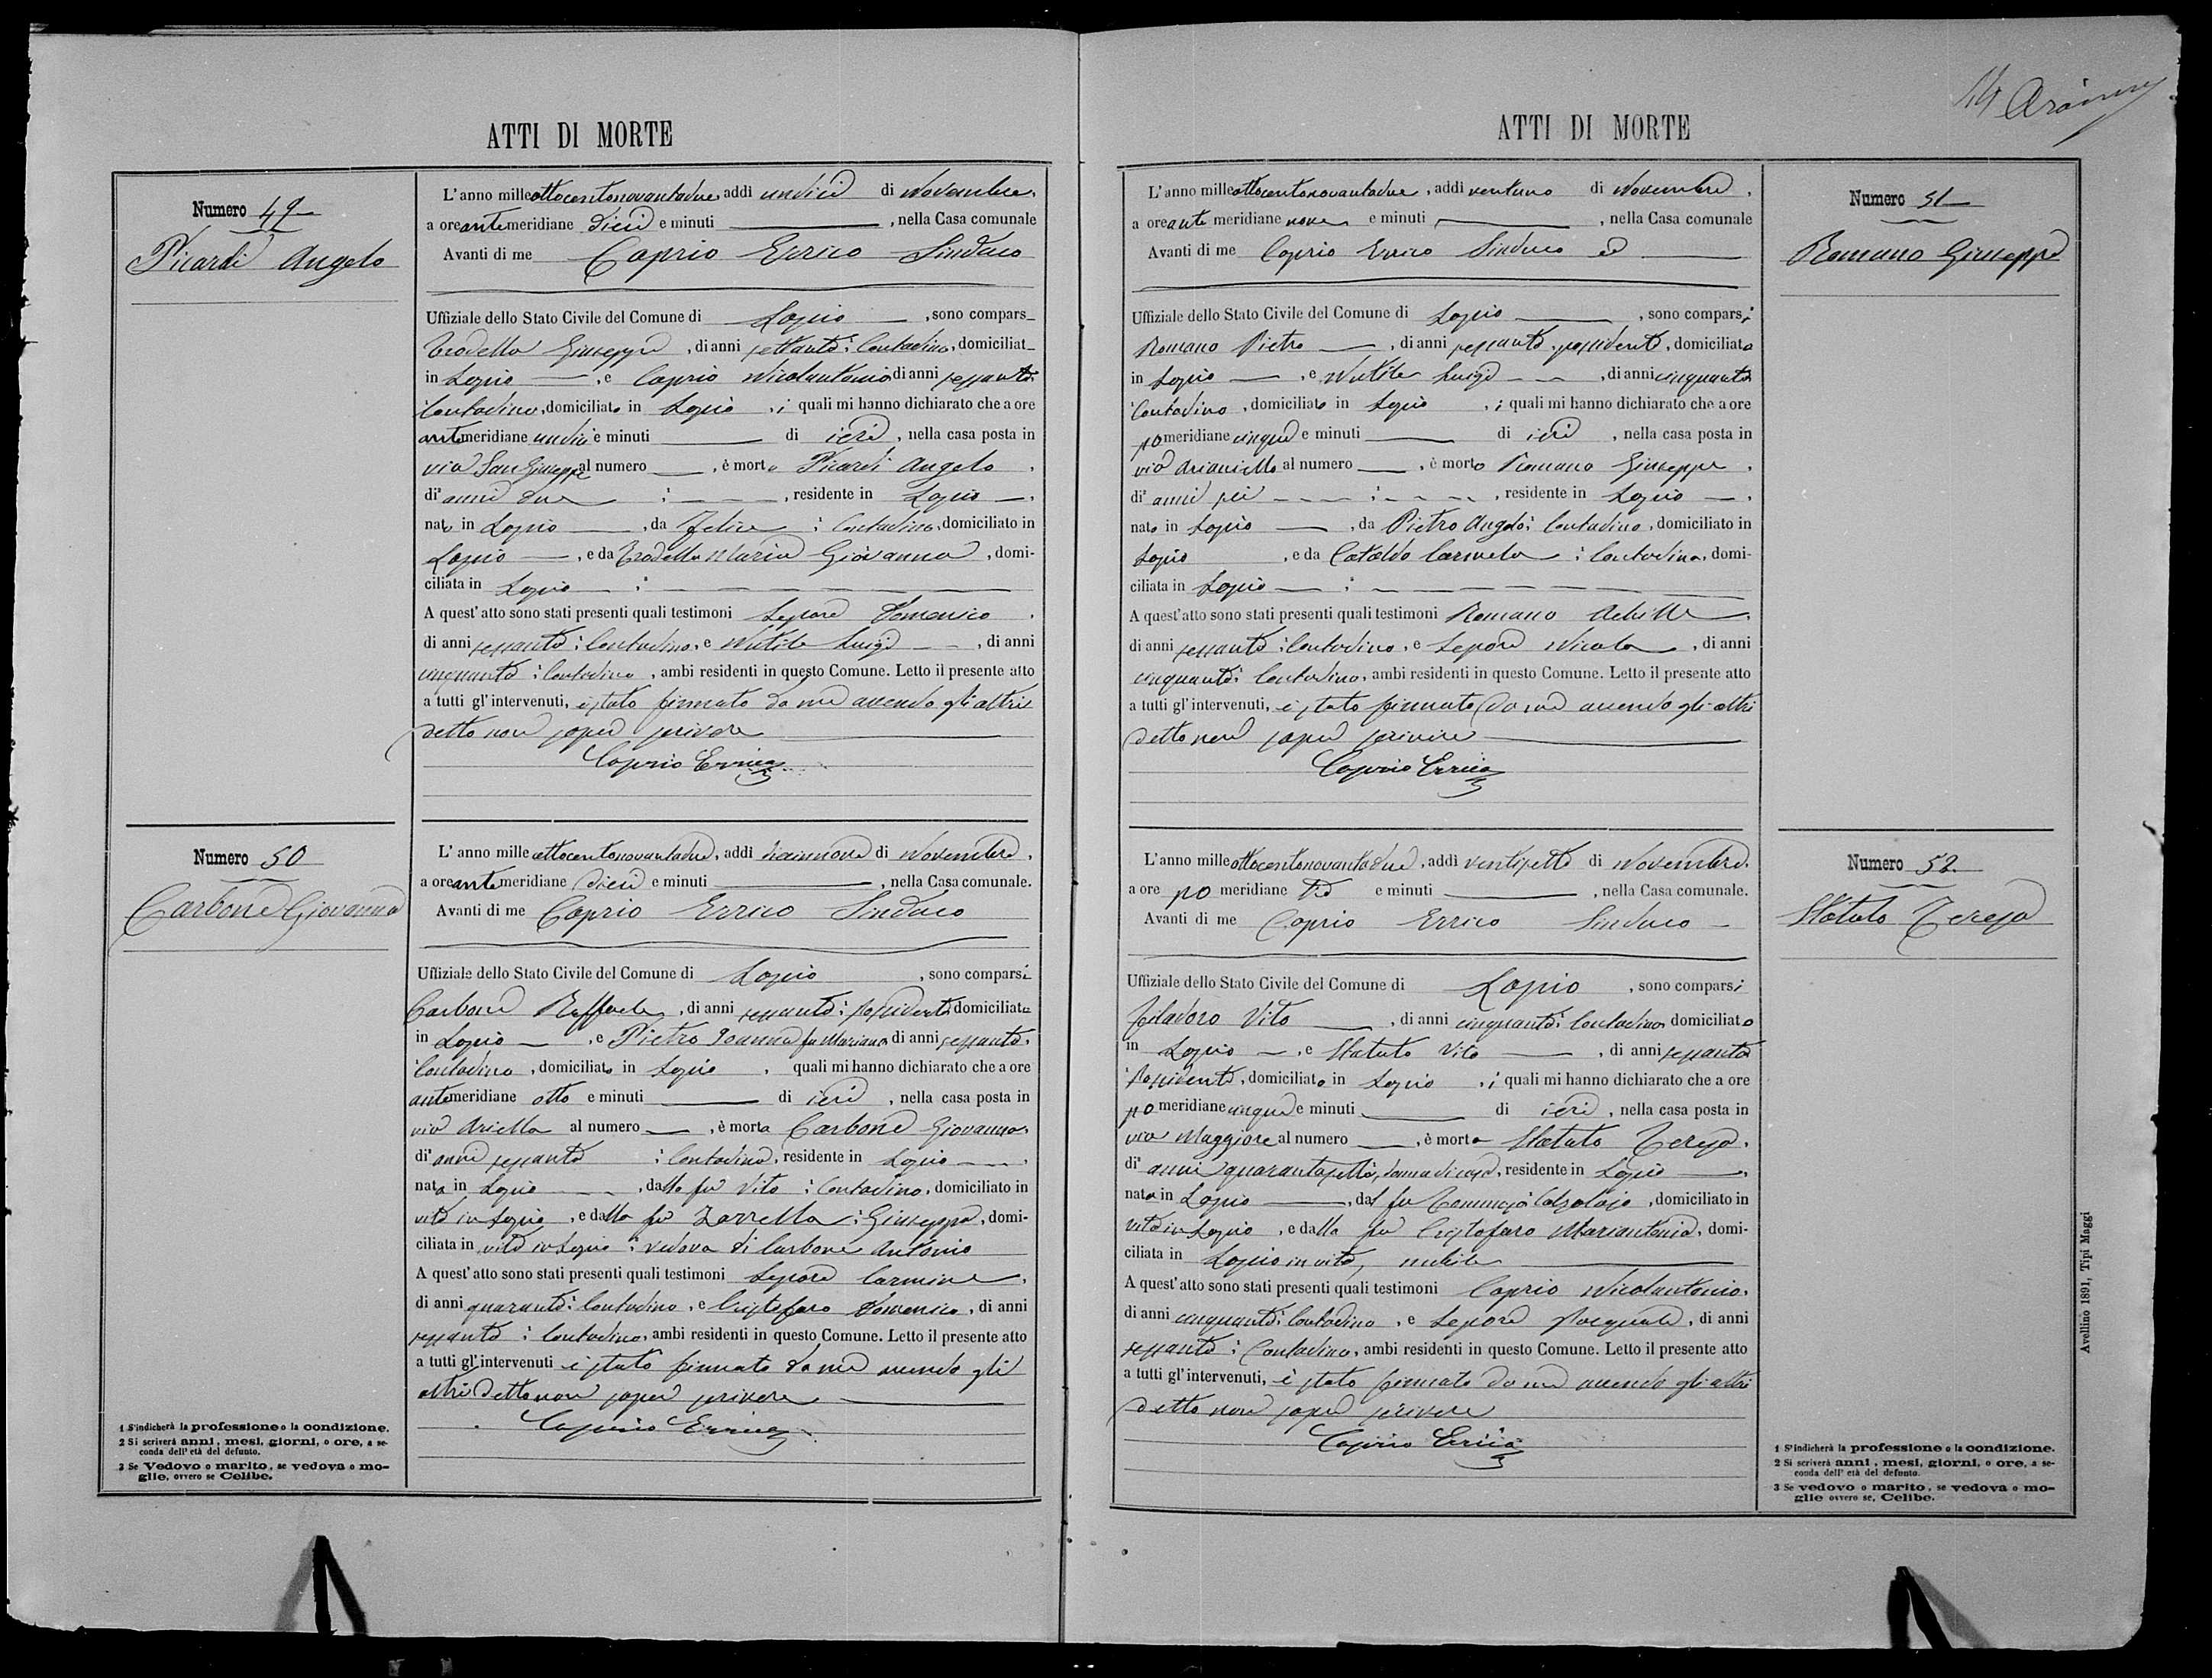 ATTI DI MORTE
Numero 49
Picardi Angelo
L'anno mille ottocentonovantadue, addì undici di Novembre,
a ore antemeridiane dieci e minuti , nella Casa comunale
Avanti di me Caprio Errico Sindaco
Uffiziale dello Stato Civile del Comune di Lapio , sono compars
Trodella Giuseppe , di anni settanta; Contadino, domiciliat
in Lapio , e Caprio Nicolantonio di anni sessanta
Contadino, domiciliato in Lapio , i quali mi hanno dichiarato che a ore
antemeridiane undici e minuti di ieri , nella casa posta in
via San Giuseppe al numero , è morto Picardi Angelo .
di anni due ; , residente in Lapio ,
nato in Lapio , da Felice ; Contadino, domiciliato in
Lapio , e da Trodella Maria Giovanna , domi-
ciliata in Lapio ;
A quest'atto sono stati presenti quali testimoni Lepore Domenico .
di anni sessanta; Contadino, e Nutile Luigi , di anni
cinquanta; Contadino , ambi residenti in questo Comune. Letto il presente atto
a tutti gl'intervenuti, è stato firmato da me avendo gli altri
detto non saper scrivere
Caprio Errico
Numero 50
Carbone Giovanna
L'anno mille ottocentonovantadue, addì diciannove di Novembre,
a ore antemeridiane dieci e minuti , nella Casa comunale.
Avanti di me Caprio Errico Sindaco
Uffiziale dello Stato Civile del Comune di Lapio , sono comparsi
Carbone Raffaele , di anni sessanta; possidente domiciliato
in Lapio , e Pietro Ioanna fu Mariano di anni sessanta,
Contadino , domiciliato in Lapio , quali mi hanno dichiarato che a ore
antemeridiane otto e minuti di ieri , nella casa posta in
via Ariella al numero , è morta Carbone Giovanna,
di anni sessanta ; Contadina, residente in Lapio ,
nata in Lapio , dallo fu Vito ; Contadino, domiciliato in
vita in Lapio , e dalla fu Zarrella ; Giuseppa, domi-
ciliata in vita in Lapio ; vedova di Carbone Antonio
A quest'atto sono stati presenti quali testimoni Lepore Carmine ,
di anni quaranta; Contadino , e Cristofaro Domenico, di anni
sessanta ; Contadino, ambi residenti in questo Comune. Letto il presente atto
a tutti gl'intervenuti è stato firmato da me avendo gli
altri detto non saper scrivere
Caprio Errico
1 S'indicherà la professione o la condizione.
2 Si scriverà anni, mesi, giorni, o ore, a se-
conda dell'età del defunto.
3 Se Vedovo o marito, se vedova o mo-
glie, ovvero se Celibe.
14
ATTI DI MORTE
L'anno mille ottocentonovantadue, addì ventuno di Novembre ,
a ore ante meridiane nove e minuti , nella Casa comunale
Avanti di me Caprio Errico Sindaco ed
Uffiziale dello Stato Civile del Comune di Lapio , sono comparsi
Romano Pietro , di anni sessanta, possidente, domiciliato
in Lapio , e Nutile Luigi , di anni cinquanta
Contadino , domiciliato in Lapio , i quali mi hanno dichiarato che a ore
pomeridiane cinque e minuti di ieri , nella casa posta in
via Arianiello al numero , è morto Romano Giuseppe ,
di anni sei ; , residente in Lapio ,
nato in Lapio , da Pietro Angelo; Contadino, domiciliato in
Lapio , e da Cataldo Carmela ; Contadina, domi-
ciliata in Lapio ;
A quest'atto sono stati presenti quali testimoni Romano Achille ,
di anni sessanta; Contadino, e Lepore Nicola , di anni
cinquanta; Contadino, ambi residenti in questo Comune. Letto il presente atto
a tutti gl'intervenuti, è stato firmato da me avendo gli altri
detto non saper scrivere
Caprio Errico
Numero 51
Romano Giuseppe
L'anno mille ottocentonovantadue, addì ventisette di Novembre.
a ore po meridiane tre e minuti , nella Casa comunale.
Avanti di me Caprio Errico Sindaco
Uffiziale dello Stato Civile del Comune di Lapio , sono comparsi
Filadoro Vito , di anni cinquanta; Contadino domiciliato
in Lapio , e Statuto Vito , di anni sessanta
Possidente, domiciliato in Lapio , i quali mi hanno dichiarato che a ore
po meridiane cinque e minuti di ieri , nella casa posta in
via Maggiore al numero , è morta Statuto Teresa,
di anni quarantasette, donna di casa, residente in Lapio ,
nata in Lapio , dal fu Tommaso Calzolaio , domiciliato in
vita in Lapio , e dalla fu Cristofaro Mariantonia, domi-
ciliata in Lapio in vita, nubile
A quest'atto sono stati presenti quali testimoni Caprio Nicolantonio,
di anni cinquanta; Contadino , e Lepore Pasquale, di anni
sessanta ; Contadino, ambi residenti in questo Comune. Letto il presente atto
a tutti gl'intervenuti, è stato firmato da me avendo gli altri
detto non saper scrivere
Caprio Errico
Numero 52
Statuto Teresa
1 S'indicherà la professione o la condizione.
2 Si scriverà anni, mesi, giorni, o ore, a se-
conda dell'età del defunto.
3 Se vedovo o marito, se vedova o mo-
glie ovvero se, Celibe.
Avellino 1891, Tipi Maggi